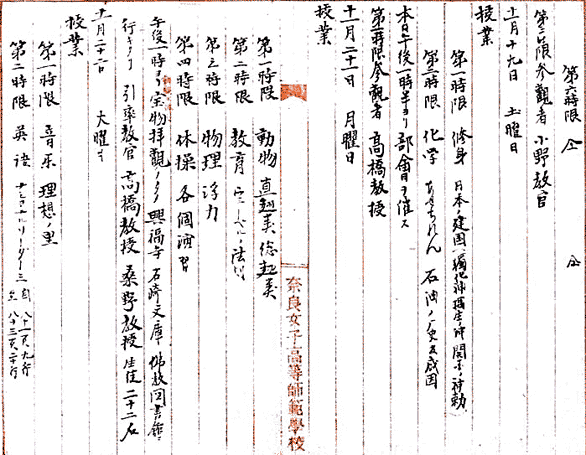 第六時限 仝 仝
第三限参観者 小野教官
十一月十九日 土曜日
授業
第一時限 修身 日本ノ建国
第二時限 化学 あせちれん 石油ノ
本日午後一時半ヨリ部會ヲ催ス
第二時限参観者 高橋教授
十一月二十一日 月曜日
授業
第一時限 動物 直翅类
第二時限 教育
第三時限 物理 浮力
第四時限 体操 各個演習
午後一時ヨリ宝物拝観 興福寺 石崎文庫 佛教図書館
行キタリ 引率教官 高橋教授 桑野教授 生徒二十二名
十一月二十二日 火曜日
授業
第一時限 音乐 理想ノ里
第二時限 英語 リーダー三 自八十一頁九行
至八十三頁二十行
奈良女子高等師範學校